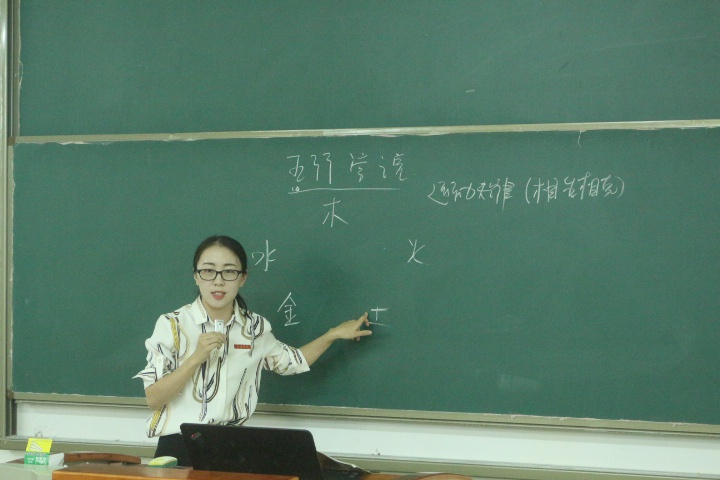 五行学说
运动规律(相生相克)
木
水 火
金 土